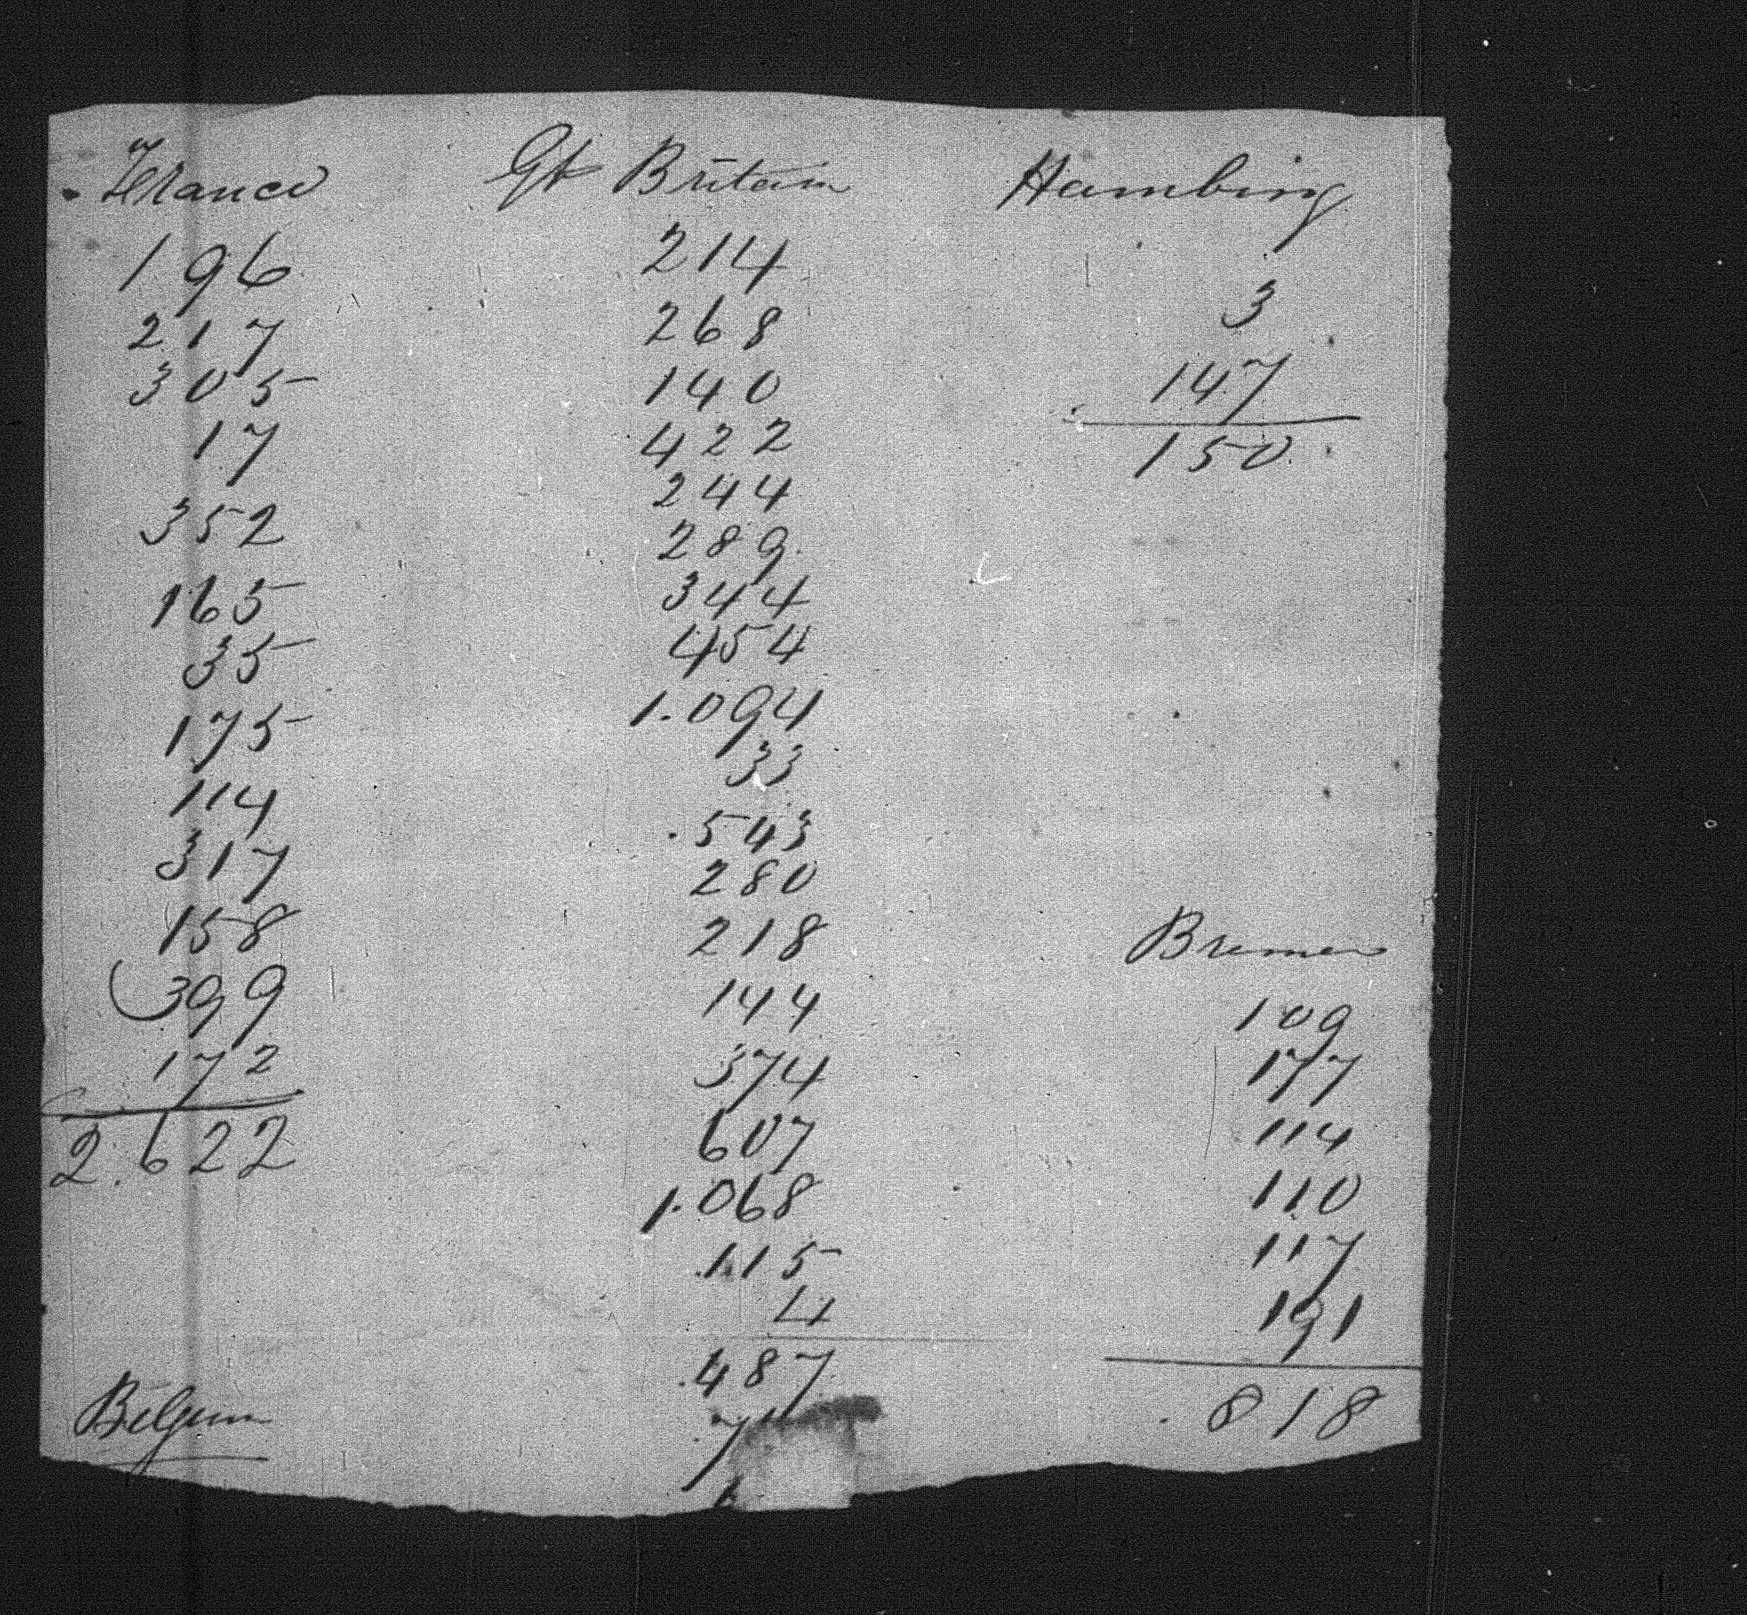 France
196
217
305
17
352
165
35
175
114
317
158
399
172
2.622
Belgium
Gt Britain
214
268
140
422
244
289
344
454
1.094
33
543
280
218
144
374
607
1.068
115
4
487
Hamburg
3
147
150
Bremen
109
177
114
110
117
191
818